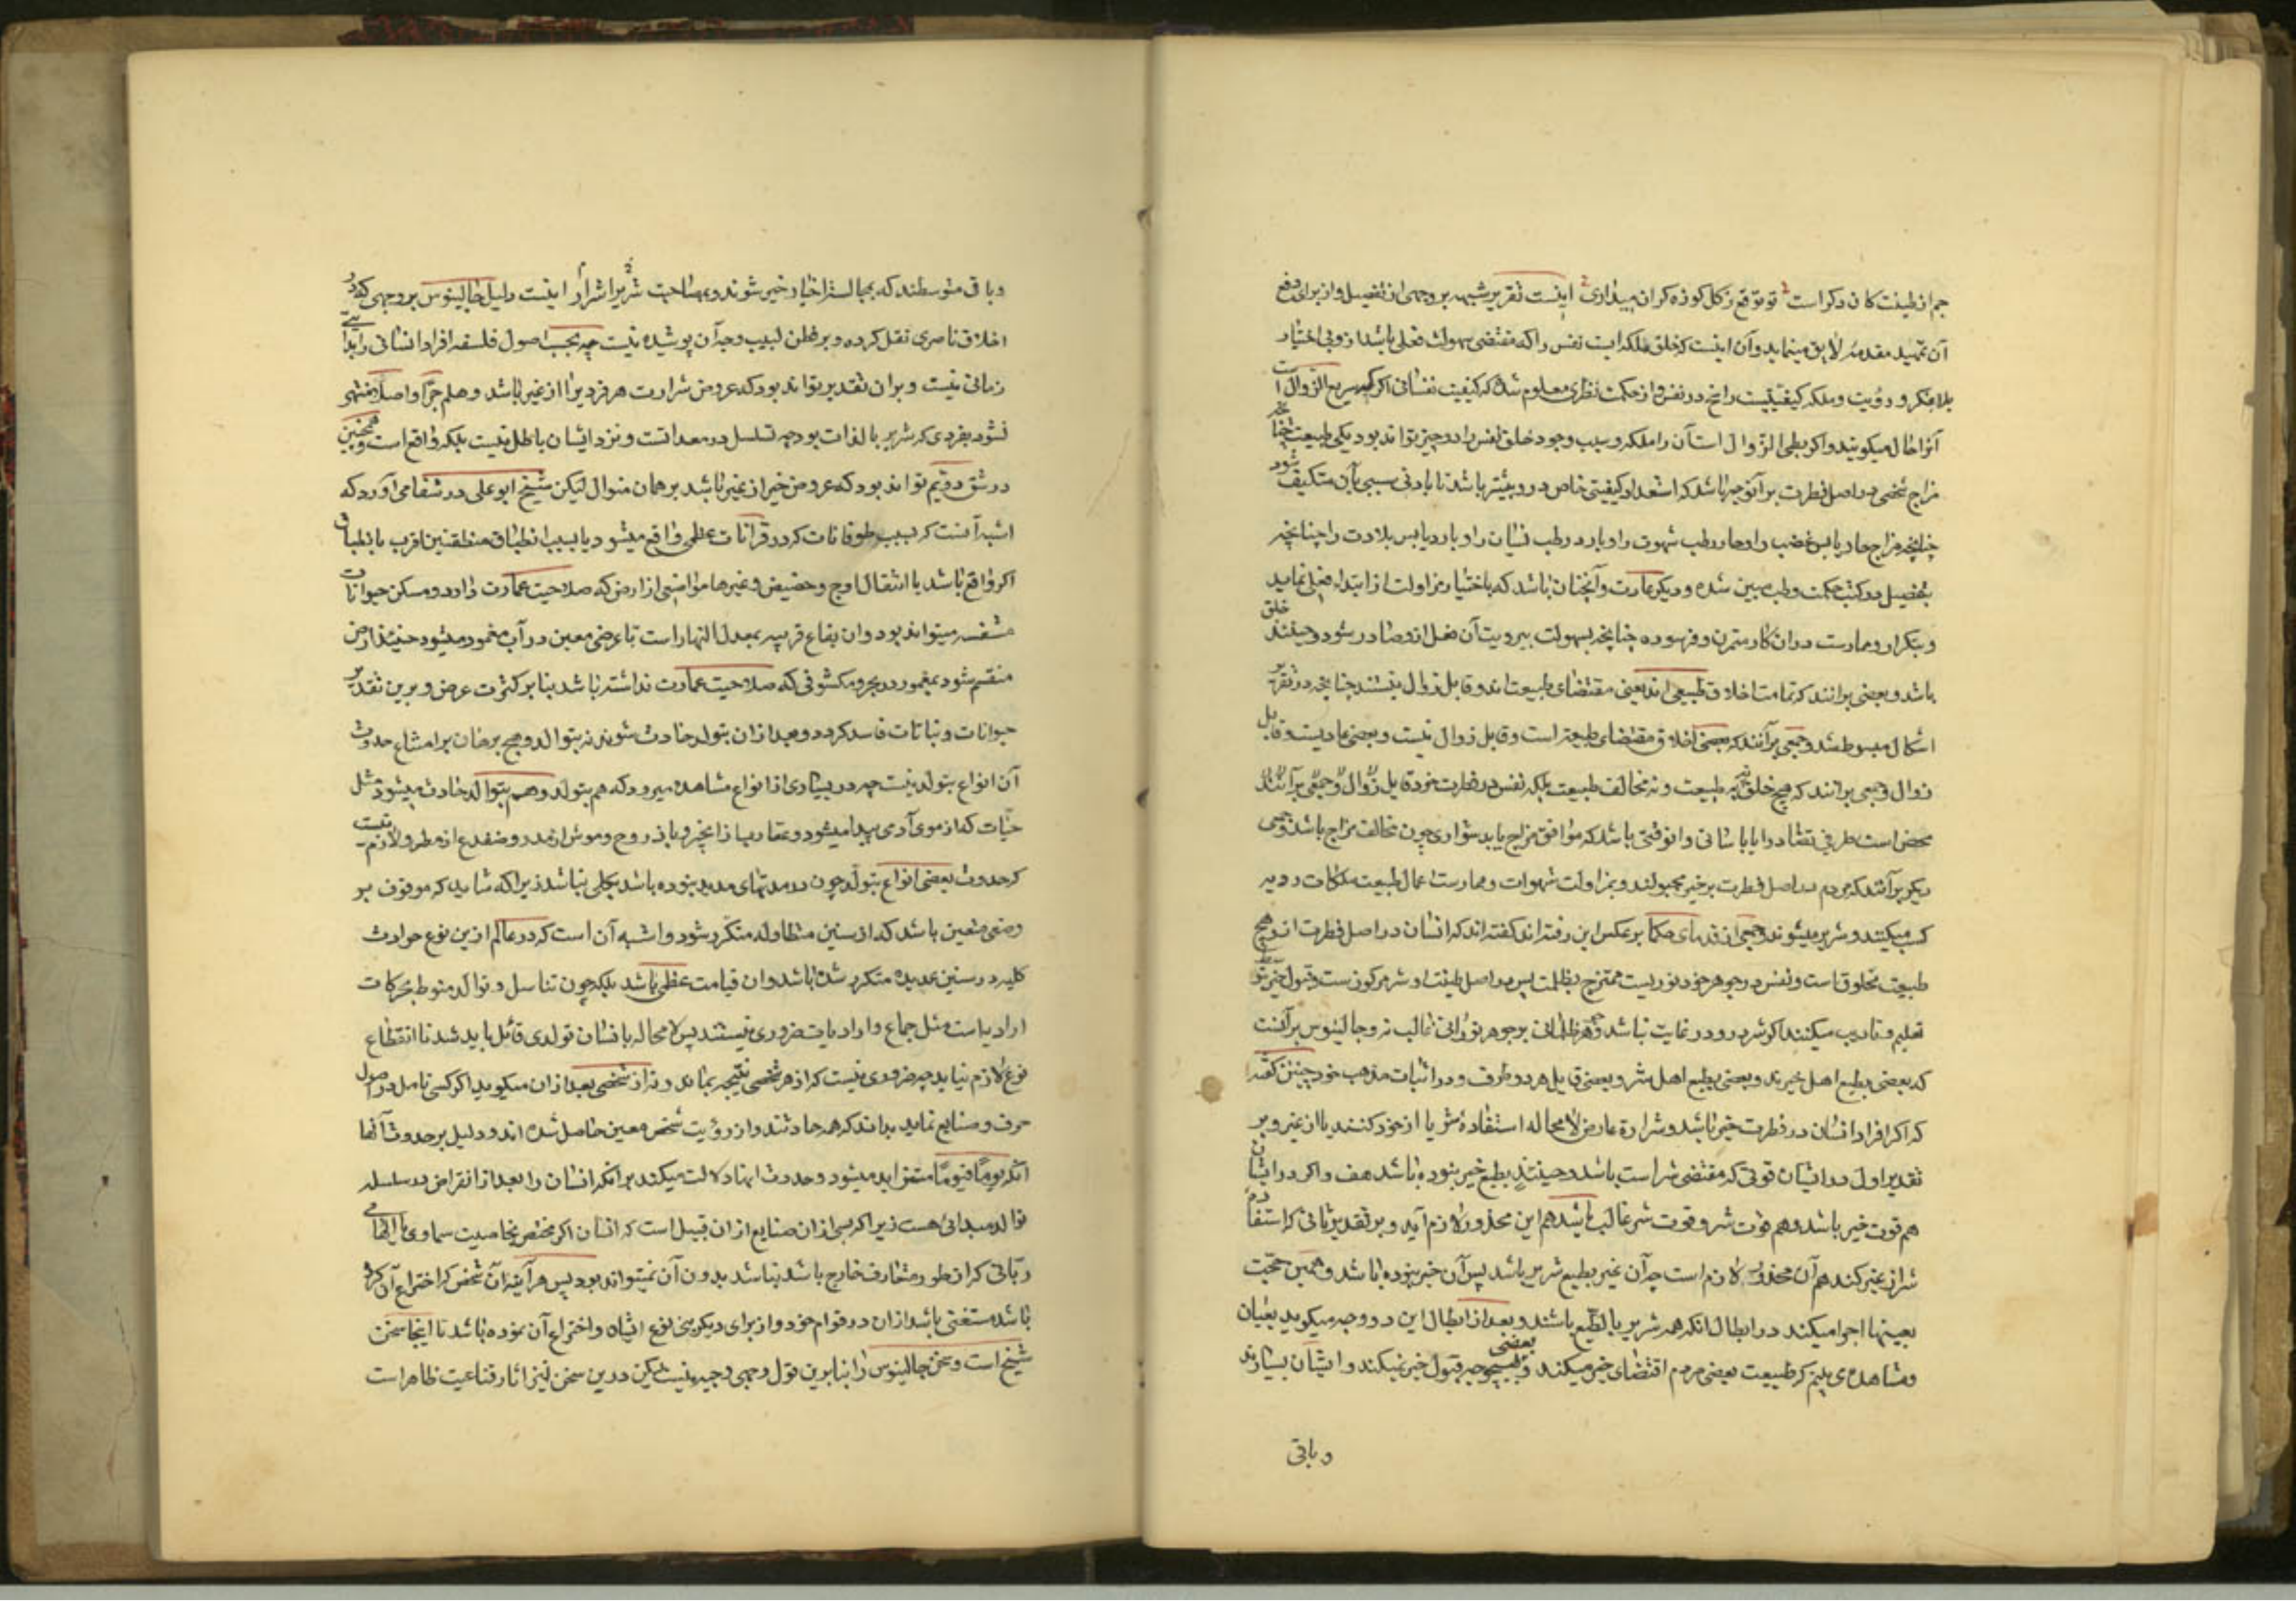 جم از طینت کان دگر است تو توقع ز گل کوزه کران میداری اینست تقریر شبهه بر وجهی از تفصیل و از برای دفع
آن تمهید مقدمهٔ لایق مینماید و آن اینست که خلق ملکه ایست نفس را که مقتضی سهولت فعلی باشد از وی بی اختیار
بلا فکر و رویت و ملکه کیفیتیست راسخه در نفس و از حکمت نظری معلوم شده که کیفیت نفسانی اگر سریع الزوال است
آنرا حال میگویند و اگر بطی الزوال است آن را ملکه و سبب وجود خلق نفس را دو چیز تواند بود یکی طبیعت چنانچه
مزاج شخصی در اصل فطرت بر آنوجه باشد که استعداد کیفیتی خاص در و بیشتر باشد تا بادنی سببی بآن متکیف شود
چنانچه مزاج حار یابس غضب را و حار رطب شهوت را و بارد رطب نسیان را و بارد یابس بلادت را چنانچه
بتفصیل در کتب حکمت و طب مبین شده و دیگر عادت و آنچنان باشد که باختیار مزاولت از ابتداء فعلی نماید
و بتکرار و ممارست در ان کار متمرن و فرسوده چنانچه بسهولت بی رویت آن فعل ازو صادر شود و حینئذ خلق
باشد و بعضی برانند که تمامت اخلاق طبیعی اند یعنی مقتضای طبیعت اند و قابل زوال نیستند چنانچه در تقریر
اشکال مبسوط شد و جمعی برآنند که بعضی اخلاق مقتضای طبیعت است و قابل زوال نیست و بعضی عادیست و قابل
زوال و جمعی برانند که هیچ خلق نه طبیعت و نه مخالف طبیعت بلکه نفس در فطرت خود قابل
محض است طرفی تضاد را یا باسانی و ان وقتی باشد که موافق مزاج یا بدشواری چون مخالف مزاج باشد و جمعی
دیگر برآنند که مردم در اصل فطرت بر خیر مجبولند و بمزاولت شهوات و ممارست اعمال طبیعت ملکات ردیه
کسب میکنند و شریر میشوند و جمعی از قدمای حکما بر عکس این رفته اند گفته اند که انسان در اصل فطرت از
طبیعت مخلوق است و نفس در جوهر خود نوریست ممتزج بظلمت پس در اصل طینت او شر مرکوز است و قبول خیر
تعلیم و تادیب میکنند اگر شر در و در غایت نباشد و جوهر ظلمانی بر جوهر نورانی غالب نه و جالینوس برآنست
که بعضی بطبع اهل خیرند و بعضی بطبع اهل شر و بعضی قابل هر دو طرف و در اثبات مذهب خود چنین گفته
که اگر افراد انسان در فطرت خیر باشد و شرارة عارض لا محاله استفادهٔ شر یا از خود کنند یا از غیر و بر
تقدیر اول در ایشان قوتی که مقتضی شر است باشد و حینئذ بطبع خیر نبوده باشد هف و اگر در ایشان
هم قوت خیر باشد و هم قوت شر و قوت شر غالب باشد هم این محذور لازم آید و بر تقدیر ثانی که استفاده
شر از غیر کند هم آن محذور لازم است چه آن غیر بطبع شریر باشد پس آن خیر نبوده باشد و همین حجت
بعینها اجرا میکند در ابطال انکه همه شریر بالطبع باشند و بعد از ابطال این دو وجه میگوید بعیان
و مشاهده می بینم که طبیعت بعضی مردم اقتضای خیر میکند و بعضی بهیچ وجه قبول خیر نمیکند و ایشان بسیارند
و باقی
و باقی متوسطند که بمجالست اخیار خیر شوند و بمصاحبت اشرار شریر اینست دلیل جالینوس بر وجهی که در
اخلاق ناصری نقل کرده و بر فطن لبیب وجه آن پوشیده نیست چه بحسب اصول فلسفه افراد انسانی را بدایتی
زمانی نیست و بر ان تقدیر تواند بود که عروض شرارت هر فردی را از غیر باشد و هلم جرا و اصلا منتهی
نشود بفردی که شریر بالذات بود چه تسلسل در معدات و نزد ایشان باطل نیست بلکه واقع است و همچنین
در شق دویم تواند بود که عروض خیر از غیر باشد بر همان منوال لیکن شیخ ابو علی در شفا می آورد که
اشبه آنست که بسبب طوفانات که در قرانات عظمی واقع میشود یا بسبب انطباق منطقتین اقرب بانطباق
اگر واقع باشد یا انتقال اوج و حضیض و غیرها مواضعی از ارض که صلاحیت عمارت دارد و مسکن حیوانات
متنفسه میتواند بود و ان بقاع قریبه بمعدل النهار است تا عرضی معین در آب مغمور میشود حینئذ ارض
منقسم شود بمغمور در بحر و مکشوفی که صلاحیت عمارت نداشته باشد بنا بر کثرت عرض و برین تقدیر
حیوانات و نباتات فاسد گردد و بعد از ان بتولد حادث شوند نه بتوالد و هیچ برهان بر امتناع حدوث
آن انواع بتولد نیست چه در بسیاری از انواع مشاهده میرود که هم بتولد و هم بتوالد حادث میشود مثل
حیات که از موی آدمی پیدا میشود و عقارب از انجیر و باذروج و موش از مدر و ضفدع از مطر و لازم نیست
که حدوث بعضی انواع بتولد چون در مدتهای مدید نبوده باشد بکلی نباشد زیرا که شاید که موقوف بر
وضعی متعین باشد که از سنین متطاوله متکرر شود و اشبه آن است که در عالم ازین نوع حوادث
کلیه در سنین عدیده متکرر شده باشد و ان قیامت عظمی باشد بلکه چون تناسل و توالد منوط بحرکات
ارادیاست مثل جماع و ارادیات ضروری نیستند پس لا محاله بانسان تولدی قائل باید شد تا انقطاع
نوع لازم نیاید چه ضروری نیست که از هر شخصی نتیجه بماند و نه از شخصی بعد از ان میگوید اگر کسی تامل در اصول
حرف و صنایع نماید بداند که همه حادثند و از رؤیت شخص معین حاصل شده اند و دلیل بر حدوث آنها
انکه یومًا فیومًا متزاید میشود و حدوث اینها دلالت میکند بر انکه انسان را بعد از انقراض در سلسله
توالد مبدائی هست زیرا که بسی از ان صنایع از ان قبیل است که انسان اگر مختص بخاصیت سماوی یا الهامی
ربانی که از طور متعارف خارج باشد نباشد بدون آن نمیتواند بود پس هر آینه آن شخص که اختراع آن کرده
باشد مستغنی باشد از ان در قوام خود و از برای دیگر بنی نوع انشاء و اختراع آن نموده باشد تا اینجا سخن
شیخ است و سخن جالینوس را بنا برین قول وجهی وجیه نیست لیکن درین سخن نیز اثار قناعیت ظاهر است